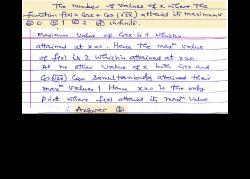 The number of values of x where the
function f(x) = Cos x + Cos (√2x) attains its maximum
⓪ 0 ① 1 ② 2 ③ infinite.
Maximum value of Cos x is 1 which is
attained at x=0. Hence The maxm value
of f(x) is 2 which is attained at x=0.
At no other value of x both Cos x and
Cos(√2x) Can Semultaneously attained their
maxm values 1 Hence x=0 is the only
point where f(x) attains its maxm value
∴ Answer